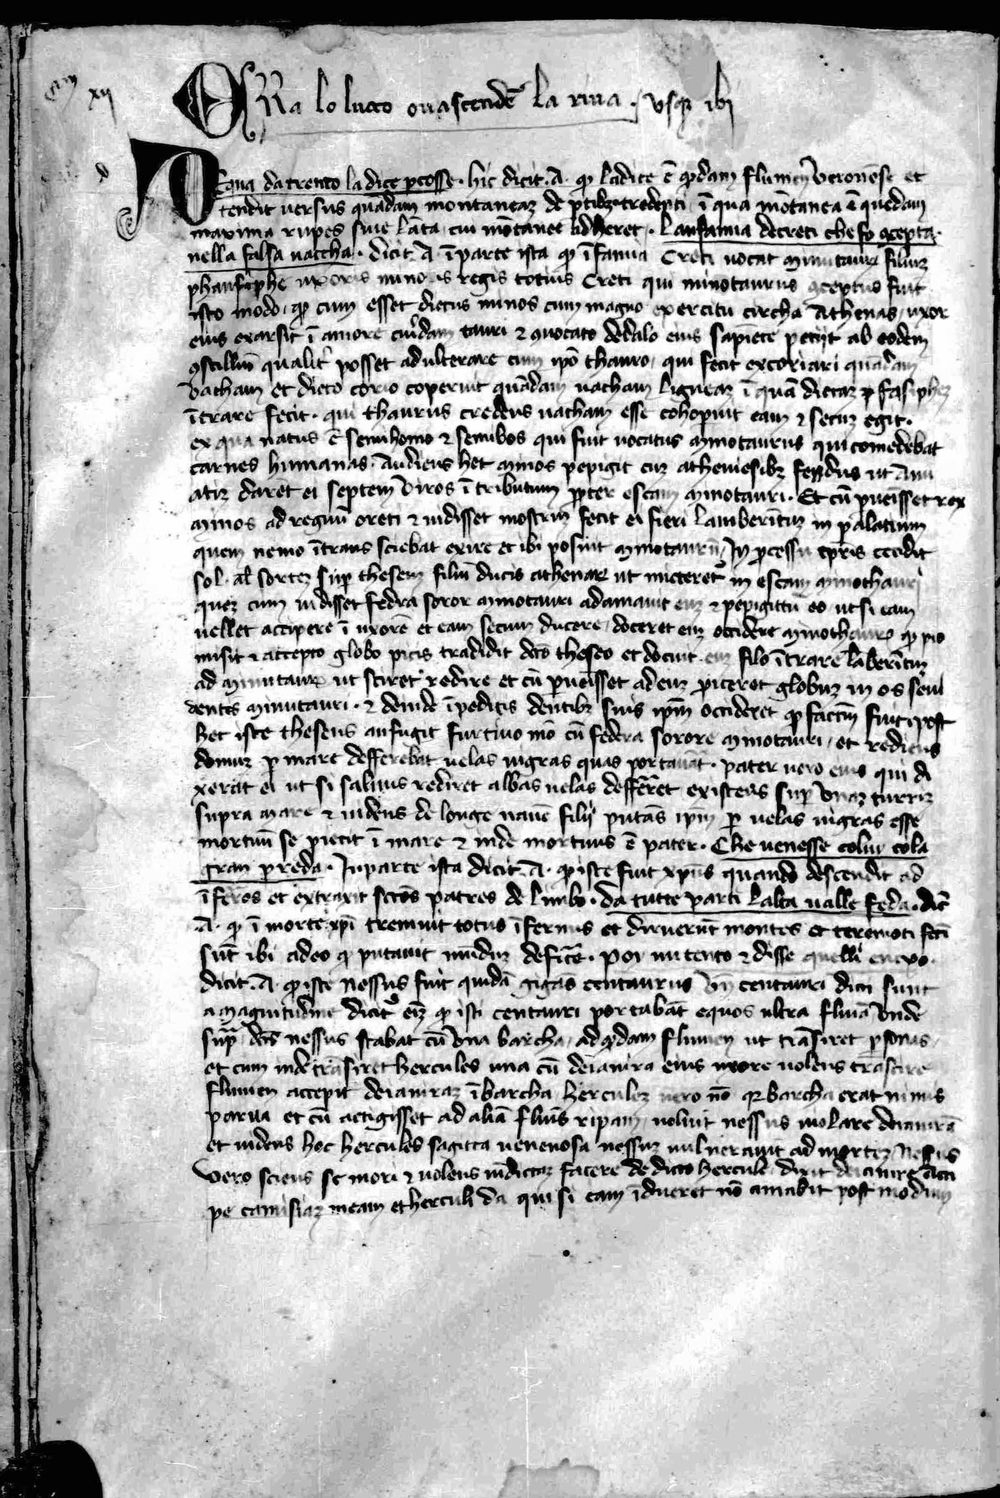 xij
ERa lo lucco ovascendẽ la riva. vsq̃ ibi
DEqua da trento ladice ꝑcosse. hic dicit. A. ꝙ ladice ẽ q̃dam flumen veronẽse et
tendit versus quadam montaneaꝫ de in qua mõtanea ẽ quedam
maxima rupes sive cui mõtanee adheret. Lanfamia decreti che fo ꝯcepta.
nella falsa vaccha. dicit. A. ĩ parte ista ꝙ ĩfamia Creti vocat minutauꝝ filiuꝫ
uxoris minois regis totius Creti qui minotaurus ꝯceptus fuit
isto modo. ꝙ cum esset dictus minos cum magno exercitu circha Athenas. uxor
eius exarsit ĩ amore cuiꝰdam tauri ⁊ ꝯuocato dedalo eius sapiẽte petijt ab eodem
ꝯscilliũ qualit̃ posset adulterare cum ip̃o thauro, qui fecit excoriari quãdam
vacham et dicto corio coperuit quãdam vacham ligneaꝫ ĩ quã dictaꝫ
ĩtrare fecit. qui thaurus credens vacham esse cohoperuit eam ⁊ secuꝫ egit.
ex qua natus ẽ semihomo ⁊ semibos qui fuit vocatus minotaurus qui comedebat
carnes humanas. Audiens hec minos pepigit cuꝫ atheniesibꝫ ut
daret ei septem viros ĩ tributum ꝓpter escam minotauri. Et cũ ꝑueisset rex
minos ad regnũ creti ⁊ vidisset mostrũ fecit ei fieri lamberĩtuꝫ in palatium
quem nemo ĩtrans sciebat exire et ibi posuit minotaurũ. In ꝓcessu tꝑis cecidit
sortꝫ suꝑ thesem filiũ ducis athenaꝝ ut micteretꝰ in escam minothauri
queꝫ cum vidisset fedra soror minotauri adamavit euꝫ ⁊ eo ut si eam
vellet accipere ĩ uxorẽ et eam secum ducere, doceret euꝫ occidere minothauro
misit ⁊ accepto globo picis tradidit dc̃o theseo et docuit euꝫ filo ĩtrare laberĩtuꝫ
ad minutauꝝ ut sciret redire et cũ ꝑueisset ad euꝫ ꝓiceret globuꝫ in os
dentes minutauri. ⁊ deinde ĩpeditis dentibꝫ suis ip̃m occideret fuit post
hec iste theseus aufugit furtivo mõ cũ federa sorore minotauri, et rediens
domuꝫ ꝑ mare defferebat velas nigras quas portavãt. pater vero eius qui
xerat ei ut si salvus rediret albas velas defferret existens suꝑ unaꝫ turriꝫ
supra mare ⁊ videns de longe navẽ filij putãs ip̃m ꝑ velas nigras esse
mortuũ se piecit ĩ mare ⁊ inde mortuus ẽ pater. Che venesse colui cola
gran preda. In parte ista dicit. A. ꝙ iste fuit xp̃us quando descendit ad
ĩferos et extraxit sc̃os patres de limbo. da tutte parti lalta valle feda. dic̃
A. ꝙ ĩ morte xp̃i tremuit totus ĩfernus et diruerũt montes et teremoti fc̃i
sũt ibi adeo ꝙ putavit mũduꝫ Poi mi tento ⁊ disse quelli
dicit. A. ꝙ iste nessus fuit quidã gigãs centaurus centauri dicti sunt
a magnitudine dicit ꝙ isti centauri portabãt equos ultra fluviũ vnde
sup̃ dc̃s nessus stabat cũ vna barcha, ad q̃dam flumen ut trãsiret ꝑsonas,
et cum inde trãsiret hercules una cũ deianira eius uxore volens trãscire
flumen accepit deianiraꝫ ĩ barcha herculeꝫ vero nõ ꝗ barcha erat nimis
parva et cũ actigisset ad aliã flũis ripam voluit nessus violare deianirã
et videns hoc hercules sagitta venenosa nessuꝫ vulneravit ad morteꝫ Nessus
vero sciens se mori ⁊ volens vĩdictaꝫ facere de dicto hercule, dixit deianire acci
pe camisiaꝫ meam et herculi da qui si eam ĩdueret nõ amabit post modum